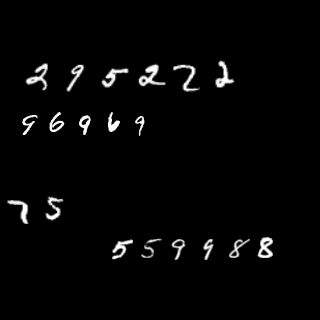 295222
96969
75
559988